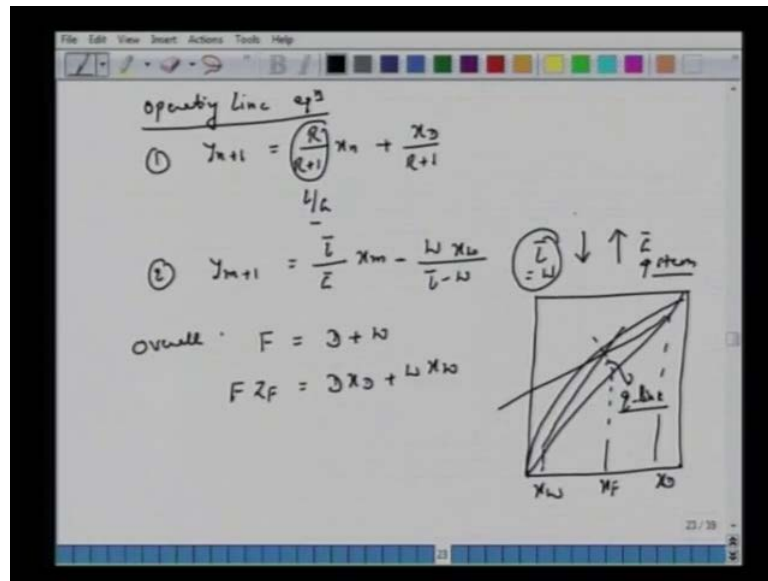 File Edit View Insert Actions Tools Help
Operating Line eqn
① yn+1 = (R/R+1) xn + xD/R+1
L/G
② ym+1 = L̄/Ḡ xm - W xw/L̄-W
L̄ = W ↓ ↑ Ḡ
steam
Overall : F = D + W
F ZF = D xD + W xw
q-line
xw xF xD
23 / 39
23